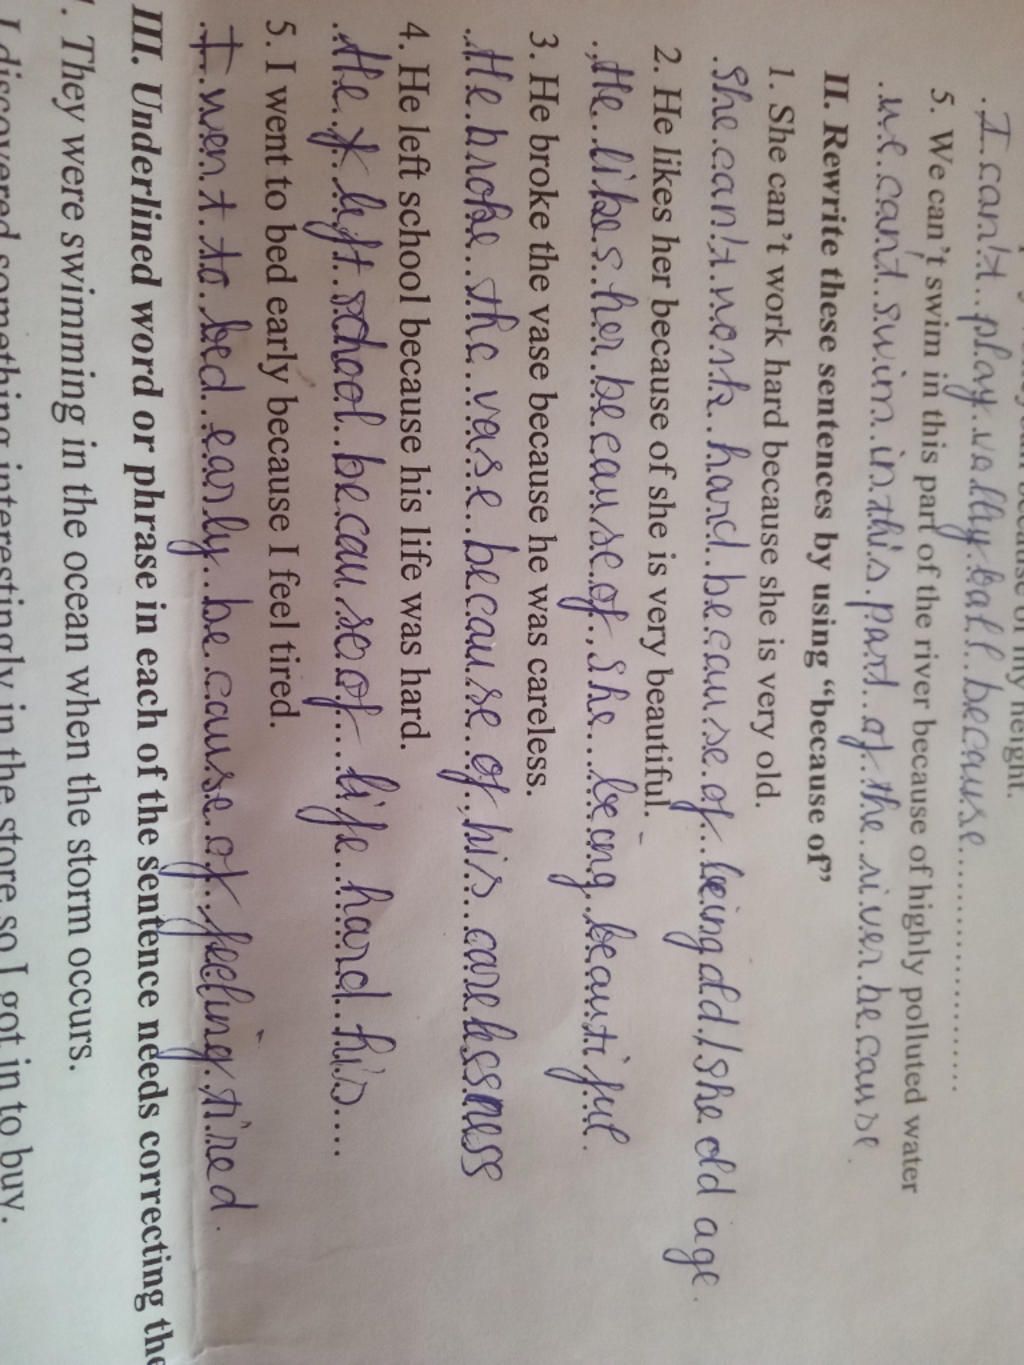 because of my height.
.I can't..play.volly.ball.because...................
5. We can't swim in this part of the river because of highly polluted water
..we.can't.swim.in.this.part.of.the.river.because.
II. Rewrite these sentences by using “because of”
1. She can’t work hard because she is very old.
.she.can't.work..hard.because.of..being old/she old age.
2. He likes her because of she is very beautiful.
..He..likes.her.because.of..she....being..beautiful.
3. He broke the vase because he was careless.
..He.broke..the..vase..because..of..his...carelessness
4. He left school because his life was hard.
..He..left..school..because of...life..hard..his....
5. I went to bed early because I feel tired.
..I.went.to.bed..early..because.of.feeling.tired.
III. Underlined word or phrase in each of the sentence needs correcting the
. They were swimming in the ocean when the storm occurs.
I discovered something interestingly in the store so I got in to buy.